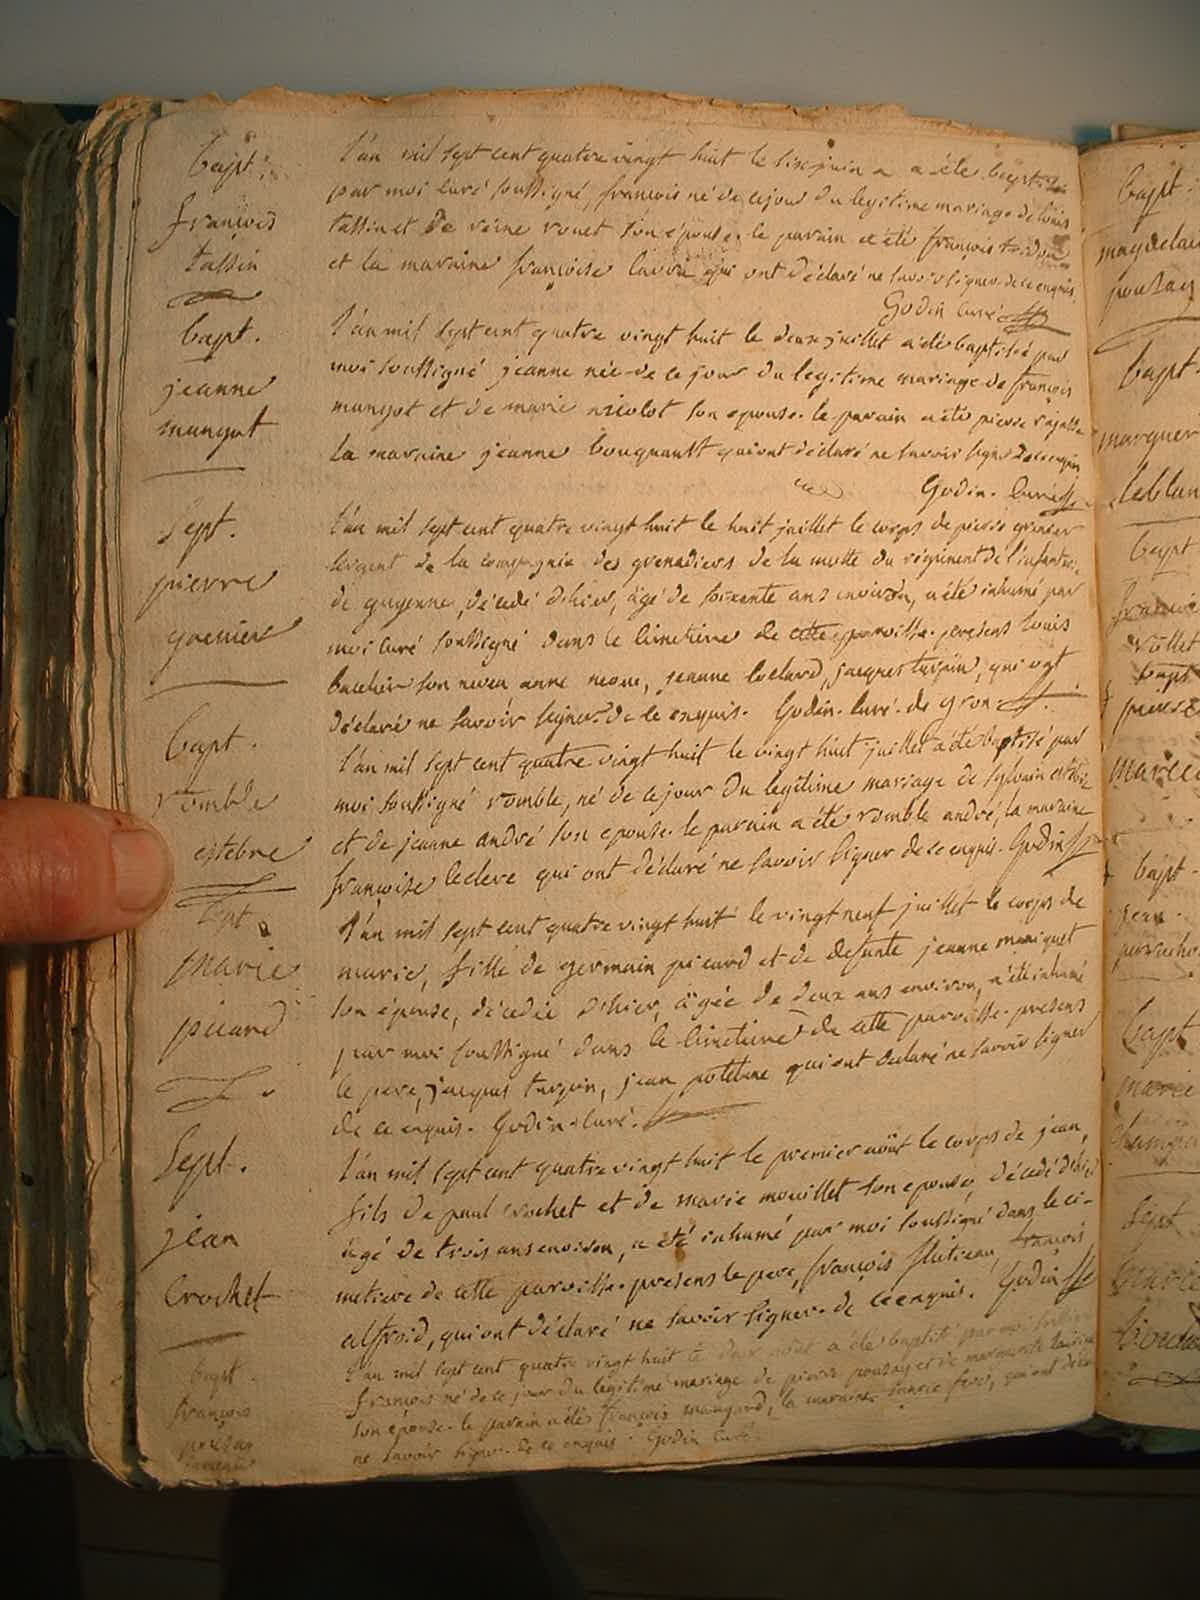 bapt.
françois
tassin
l'an mil sept cent quatre vingt huit le six juin a été baptisé
par moi curé soussigné, françois né de ce jour du legitime mariage de louis
tassin et de reine rouet son epouse. le parain a été françois
et la maraine françoise qui ont déclaré ne savoir signer de ce enquis.
Godin curé
bapt.
jeanne
mangot
l'an mil sept cent quatre vingt huit le deux juillet a été baptisée par
moi soussigné jeanne née de ce jour du legitime mariage de françois
mangot et de marie nicolot son epouse. le parain a été pierre
la maraine jeanne bouquault qui ont déclaré ne savoir signer de ce enquis
Godin. curé
Sept.
pierre
grenier
l'an mil sept cent quatre vingt huit le huit juillet le corps de pierre grenier
sergent de la compagnie des grenadiers de la motte du régiment de l'infanterie
de guyenne, décédé d'hier, âgé de soixante ans environ, a été inhumé par
moi curé soussigné dans le cimetiere de cette paroisse. presens louis
son neveu anne jeanne leclerd, jacques turpin, qui ont
déclaré ne savoir signer de ce enquis. Godin. curé. de gron
bapt.
romble
estebre
l'an mil sept cent quatre vingt huit le vingt huit juillet a été baptisé par
moi soussigné romble, né de ce jour du legitime mariage de sylvain estebre
et de jeanne andré son epouse. le parain a été romble andré, la maraine
françoise leclerc qui ont déclaré ne savoir signer de ce enquis. Godin
Sept.
marie
picard
l'an mil sept cent quatre vingt huit le vingt neuf juillet le corps de
marie, fille de germain picard et de defunte jeanne moniquet
son épouse, décédée d'hier, âgée de deux ans environ, a été inhumé
par moi soussigné dans le cimetiere de cette paroisse. presens
le pere, jacques turpin, jean potebne qui ont declaré ne savoir signer
de ce enquis. Godin curé.
Sept.
jean
Crochet
l'an mil sept cent quatre vingt huit le premier août le corps de jean,
fils de paul crochet et de marie mouillet son epouse, décédé d'hier
âgé de trois ans environ, a été inhumé par moi soussigné dans le ci-
metiere de cette paroisse. presens le pere, françois fluteau, françois
alfroid, qui ont déclaré ne savoir signer. de ce enquis. Godin
bapt.
françois
l'an mil sept cent quatre vingt huit le deux août a été baptisé par moi soussigné
françois né de ce jour du legitime mariage de pierre pouzay et de
son épouse. le parain a été françois maugard, la maraine qui ont déclaré
ne savoir signer de ce enquis. Godin curé.
bapt.
bapt.
marguer
leblan
bapt
pierre
bapt.
jean
bapt
marie
Sept